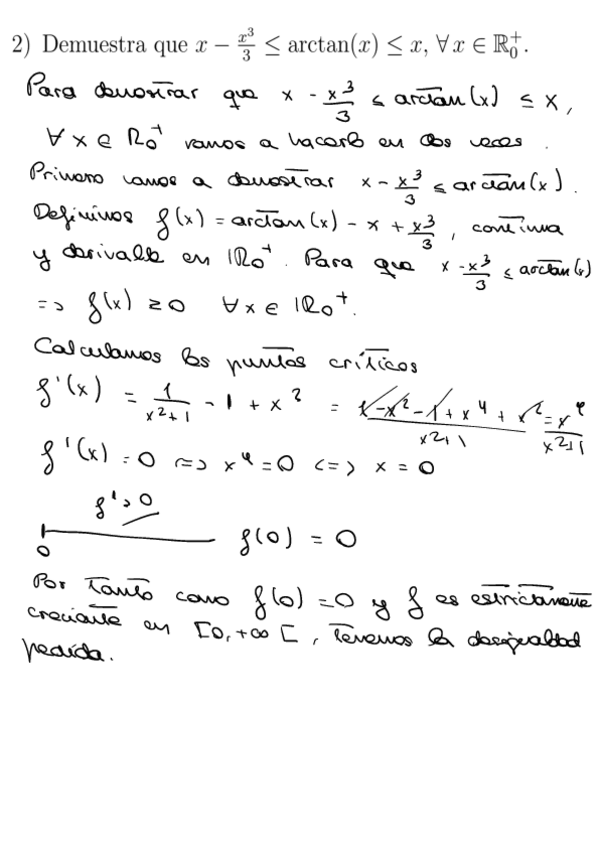 2) Demuestra que x − x³/3 ≤ arctan(x) ≤ x, ∀ x ∈ ℝ₀⁺.
Para demostrar que x - x³/3 ≤ arctan(x) ≤ x,
∀ x ∈ ℝ₀⁺ vamos a hacerlo en dos veces.
Primero vamos a demostrar x - x³/3 ≤ arctan(x).
Definimos f(x) = arctan(x) - x + x³/3, continua
y derivable en ℝ₀⁺. Para que x - x³/3 ≤ arctan(x)
=> f(x) ≥ 0 ∀ x ∈ ℝ₀⁺.
Calculamos los puntos críticos
f'(x) = 1/(x²+1) - 1 + x² = (1 - x² - 1 + x⁴ + x²)/(x²+1) = x⁴/(x²+1)
f'(x) = 0 <=> x⁴ = 0 <=> x = 0
f' > 0
0 f(0) = 0
Por tanto como f(0) = 0 y f es estrictamente
creciente en [0, +∞[, tenemos la desigualdad
pedida.